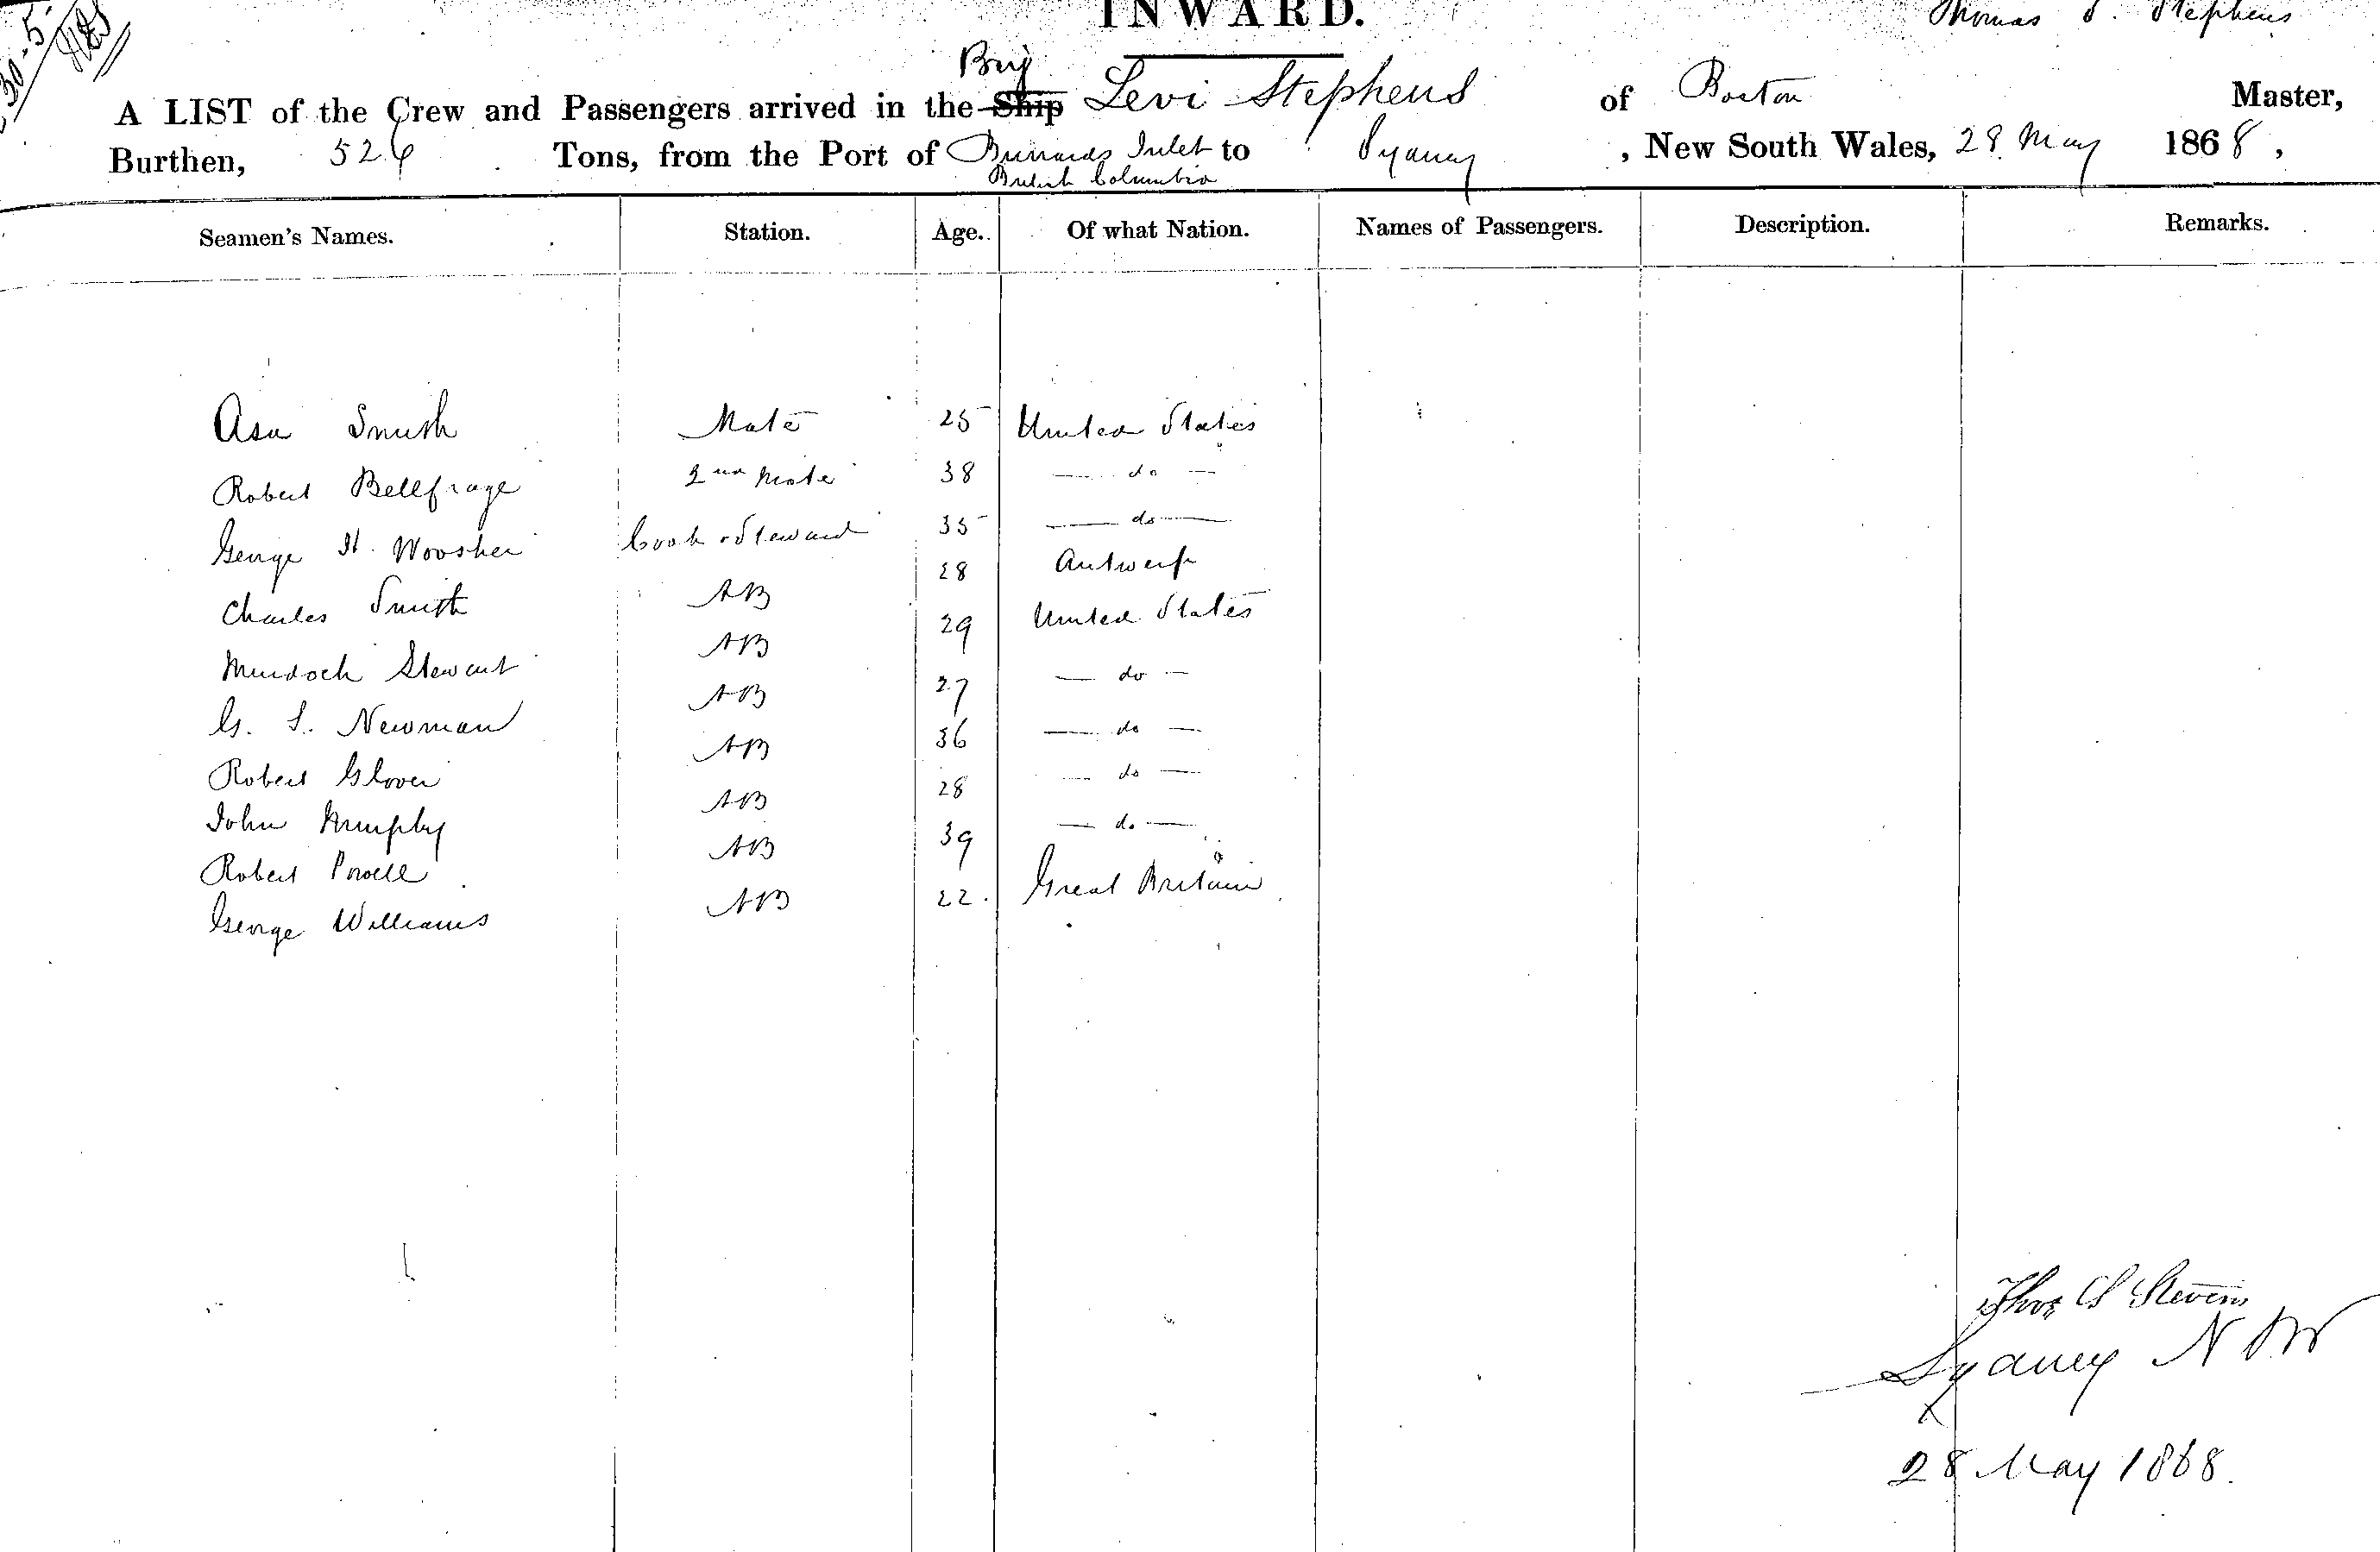 30-5
INWARD.
Thomas S. Stephens
Brig
A LIST of the Crew and Passengers arrived in the Ship Levi Stephens of Boston Master,
Burthen, 526 Tons, from the Port of Burrards Inlet to Sydney, New South Wales, 28 May 1868,
British Columbia
Seamen's Names. Station. Age. Of what Nation. Names of Passengers. Description. Remarks.
Asa Smith Mate 25 United States
Robert Bellfrage 2nd Mate 38 — do —
George H. Woosher Cook & Steward 35 — do —
Charles Smith AB 28 Antwerp
Murdoch Stewart AB 29 United States
G. S. Newman AB 27 — do —
Robert Glover AB 36 — do —
John Murphy AB 28 — do —
Robert Powell AB 39 — do —
George Williams AB 22. Great Britain
Thos S Stevens
Sydney N S W
28 May 1868.